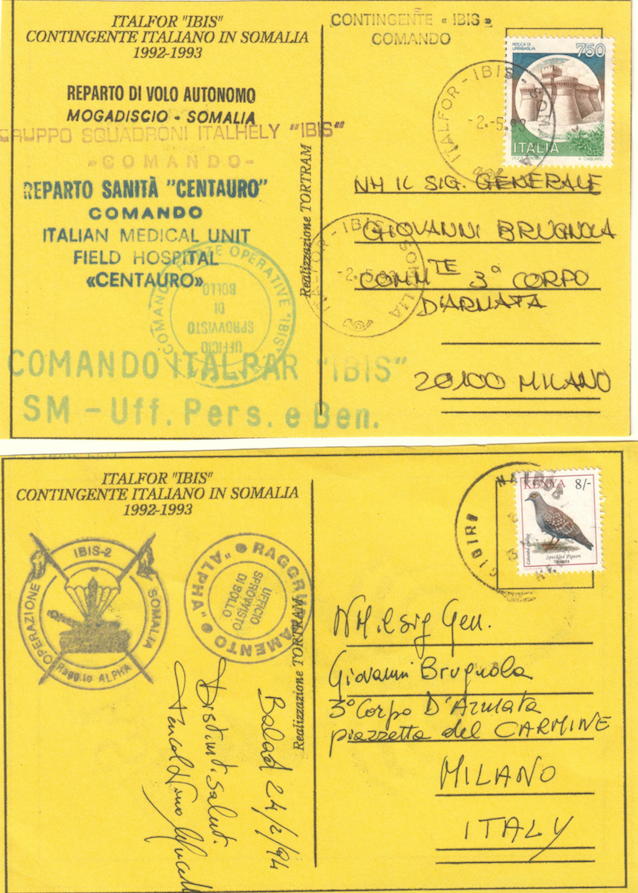 ITALFOR "IBIS"
CONTINGENTE ITALIANO IN SOMALIA
1992-1993
CONTINGENTE « IBIS »
COMANDO
ROCCA DI URBISAGLIA
750
ITALIA
ITALFOR - IBIS - SOMALIA
-2.-5.
REPARTO DI VOLO AUTONOMO
MOGADISCIO - SOMALIA
GRUPPO SQUADRONI ITALHELY "IBIS"
-COMANDO-
REPARTO SANITÀ "CENTAURO"
COMANDO
ITALIAN MEDICAL UNIT
FIELD HOSPITAL
«CENTAURO»
Realizzazione TORTRAM
NH IL SIG. GENERALE
GIOVANNI BRUGNOLA
COMM TE 3° CORPO
D'ARMATA
20100 MILANO
ITALFOR - IBIS - SOMALIA
-2.-5.
OPERATIVE "IBIS"
UFFICIO
SPROVVISTO
DI
BOLLO
COMANDO ITALPAR "IBIS"
SM - Uff. Pers. e Ben.
ITALFOR "IBIS"
CONTINGENTE ITALIANO IN SOMALIA
1992-1993
KENYA 8/-
Speckled Pigeon
OPERAZIONE IBIS-2 SOMALIA
Ragg.to ALPHA
RAGGRUPPAMENTO "ALPHA"
UFFICIO
SPROVVISTO
DI BOLLO
Realizzazione TORTRAM
Balad 24/2/94
Distinti saluti.
NH. il sig Gen.
Giovanni Brugnola
3° Corpo D'Armata
piazzetta del CARMINE
MILANO
ITALY